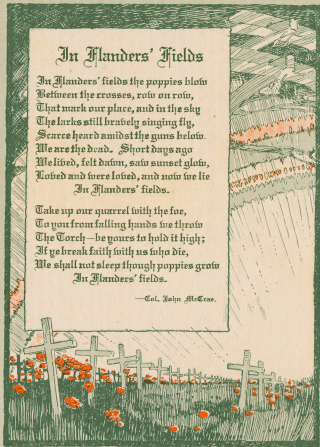 In Flanders' Fields
In Flanders' fields the poppies blow
Between the crosses, row on row,
That mark our place, and in the sky
The larks still bravely singing fly,
Scarce heard amidst the guns below.
We are the dead. Short days ago
We lived, felt dawn, saw sunset glow,
Loved and were loved, and now we lie
In Flanders' fields.
Take up our quarrel with the foe,
To you from falling hands we throw
The Torch—be yours to hold it high;
If ye break faith with us who die,
We shall not sleep though poppies grow
In Flanders' fields.
—Col. John McCrae.